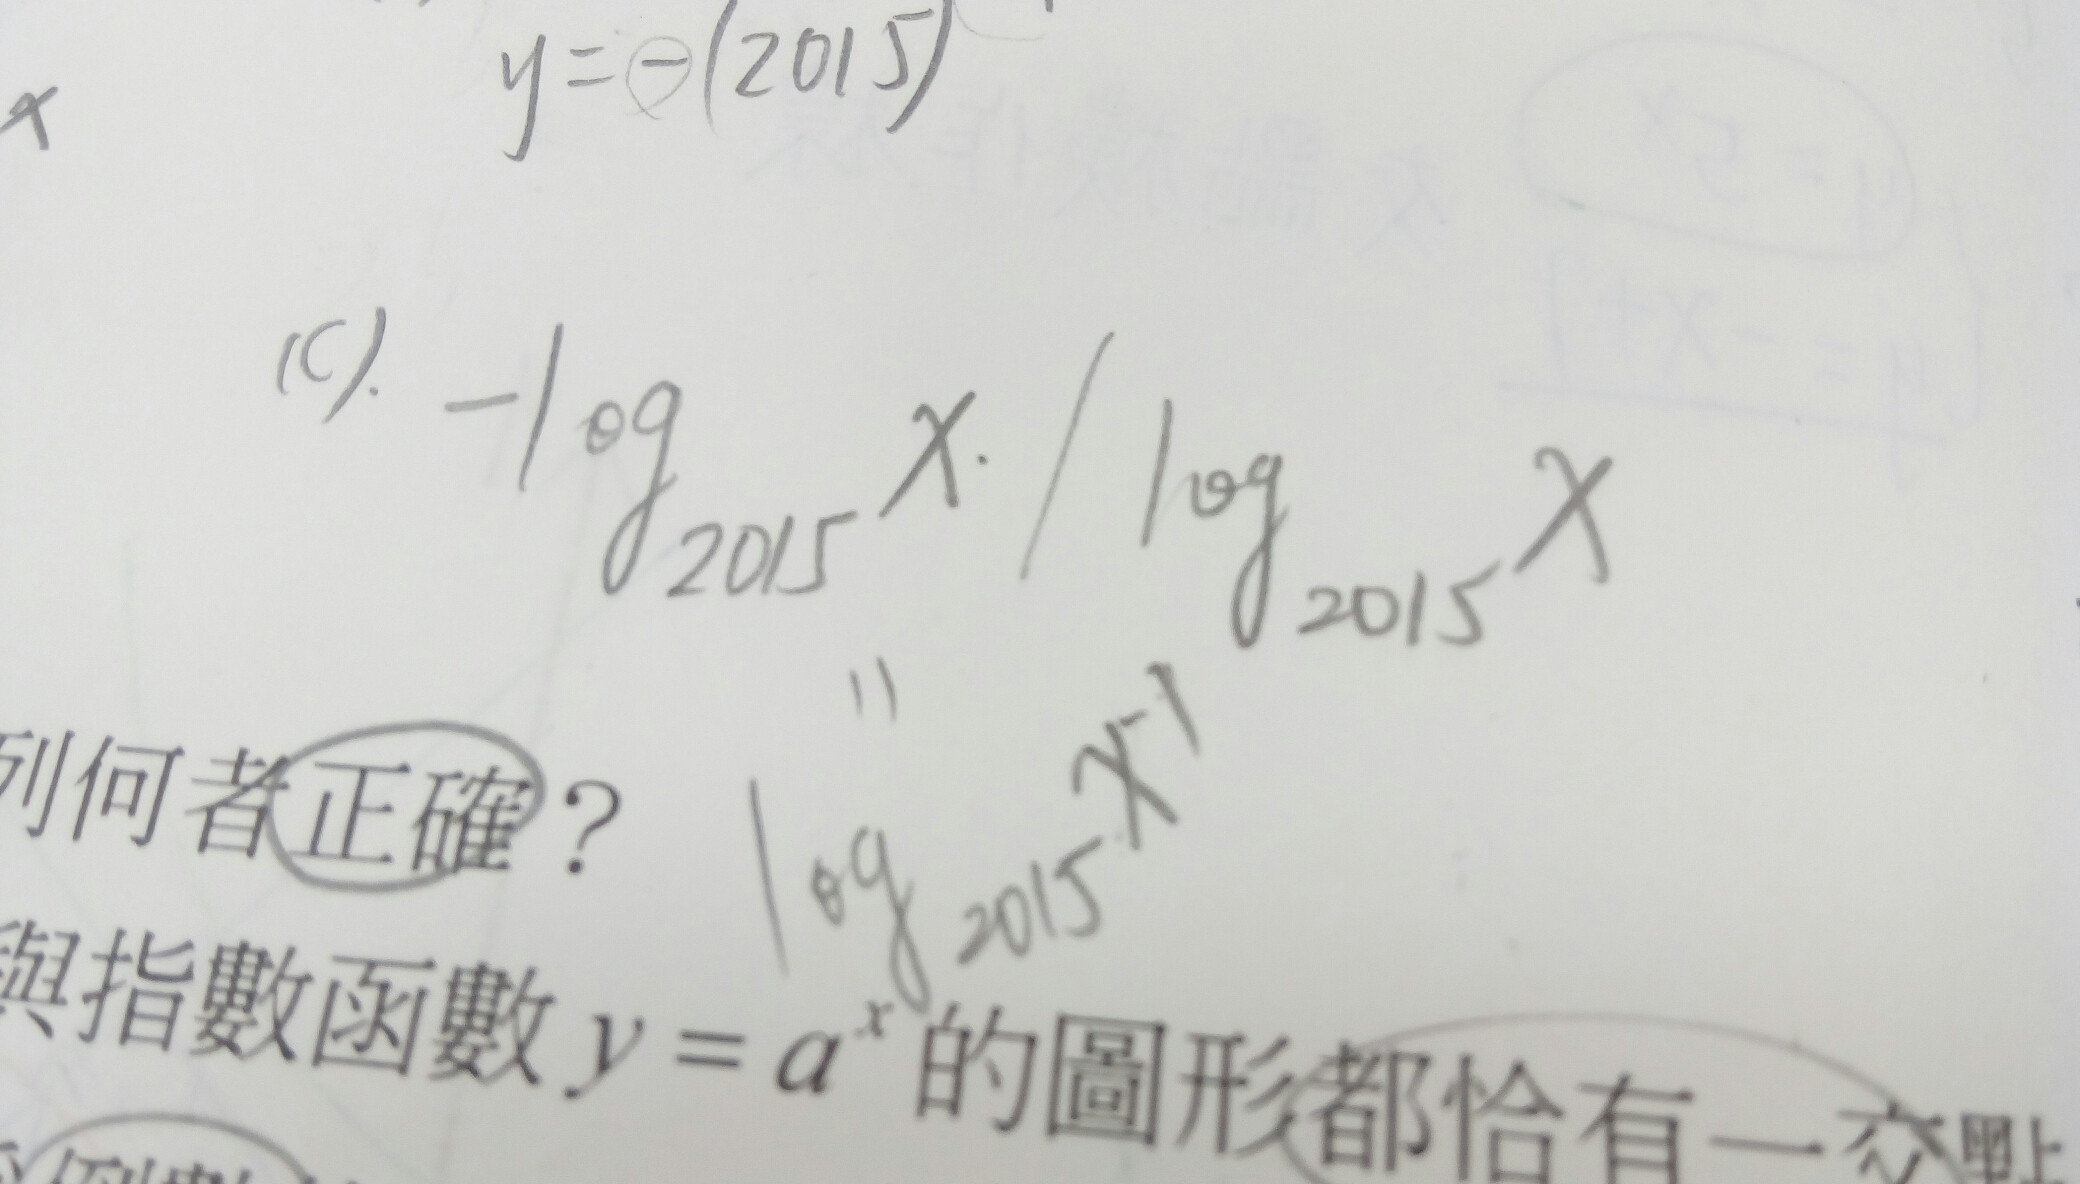 y = -(2015)
x
(C). -log₂₀₁₅ x. / log₂₀₁₅ x
=
log₂₀₁₅ x⁻¹
列何者正確？
與指數函數 y = aˣ 的圖形都恰有一交點